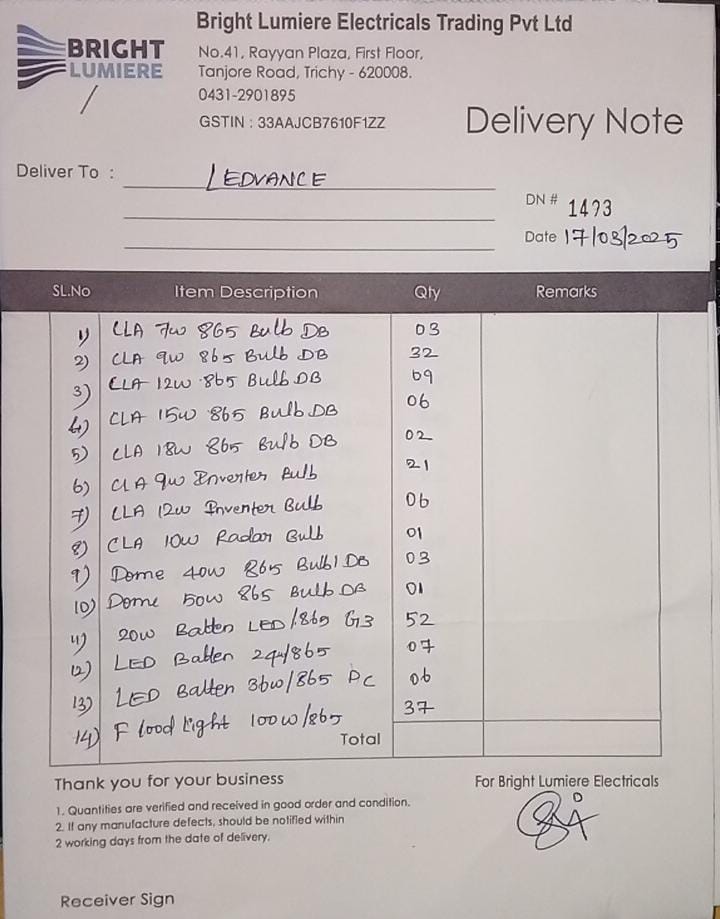 BRIGHT
LUMIERE
Bright Lumiere Electricals Trading Pvt Ltd
No.41, Rayyan Plaza, First Floor,
Tanjore Road, Trichy - 620008.
0431-2901895
GSTIN : 33AAJCB7610F1ZZ
Delivery Note
Deliver To : LEDVANCE
DN # 1493
Date 17/03/2025
SL.No Item Description Qty Remarks
1) CLA 7w 865 Bulb DB 03
2) CLA 9w 865 Bulb DB 32
3) CLA 12w 865 Bulb DB 09
4) CLA 15w 865 Bulb DB 06
5) CLA 18w 865 Bulb DB 02
6) CLA 9w Inventer Bulb 21
7) CLA 12w Inventer Bulb 06
8) CLA 10w Radar Bulb 01
9) Dome 40w 865 Bulb DB 03
10) Dome 50w 865 Bulb DB 01
11) 20w Batten LED/865 G3 52
12) LED Batten 24w/865 07
13) LED Batten 36w/865 PC 06
14) Flood Light 100w/865 37
Total
Thank you for your business
1. Quantities are verified and received in good order and condition.
2. If any manufacture defects, should be notified within
2 working days from the date of delivery.
For Bright Lumiere Electricals
Receiver Sign